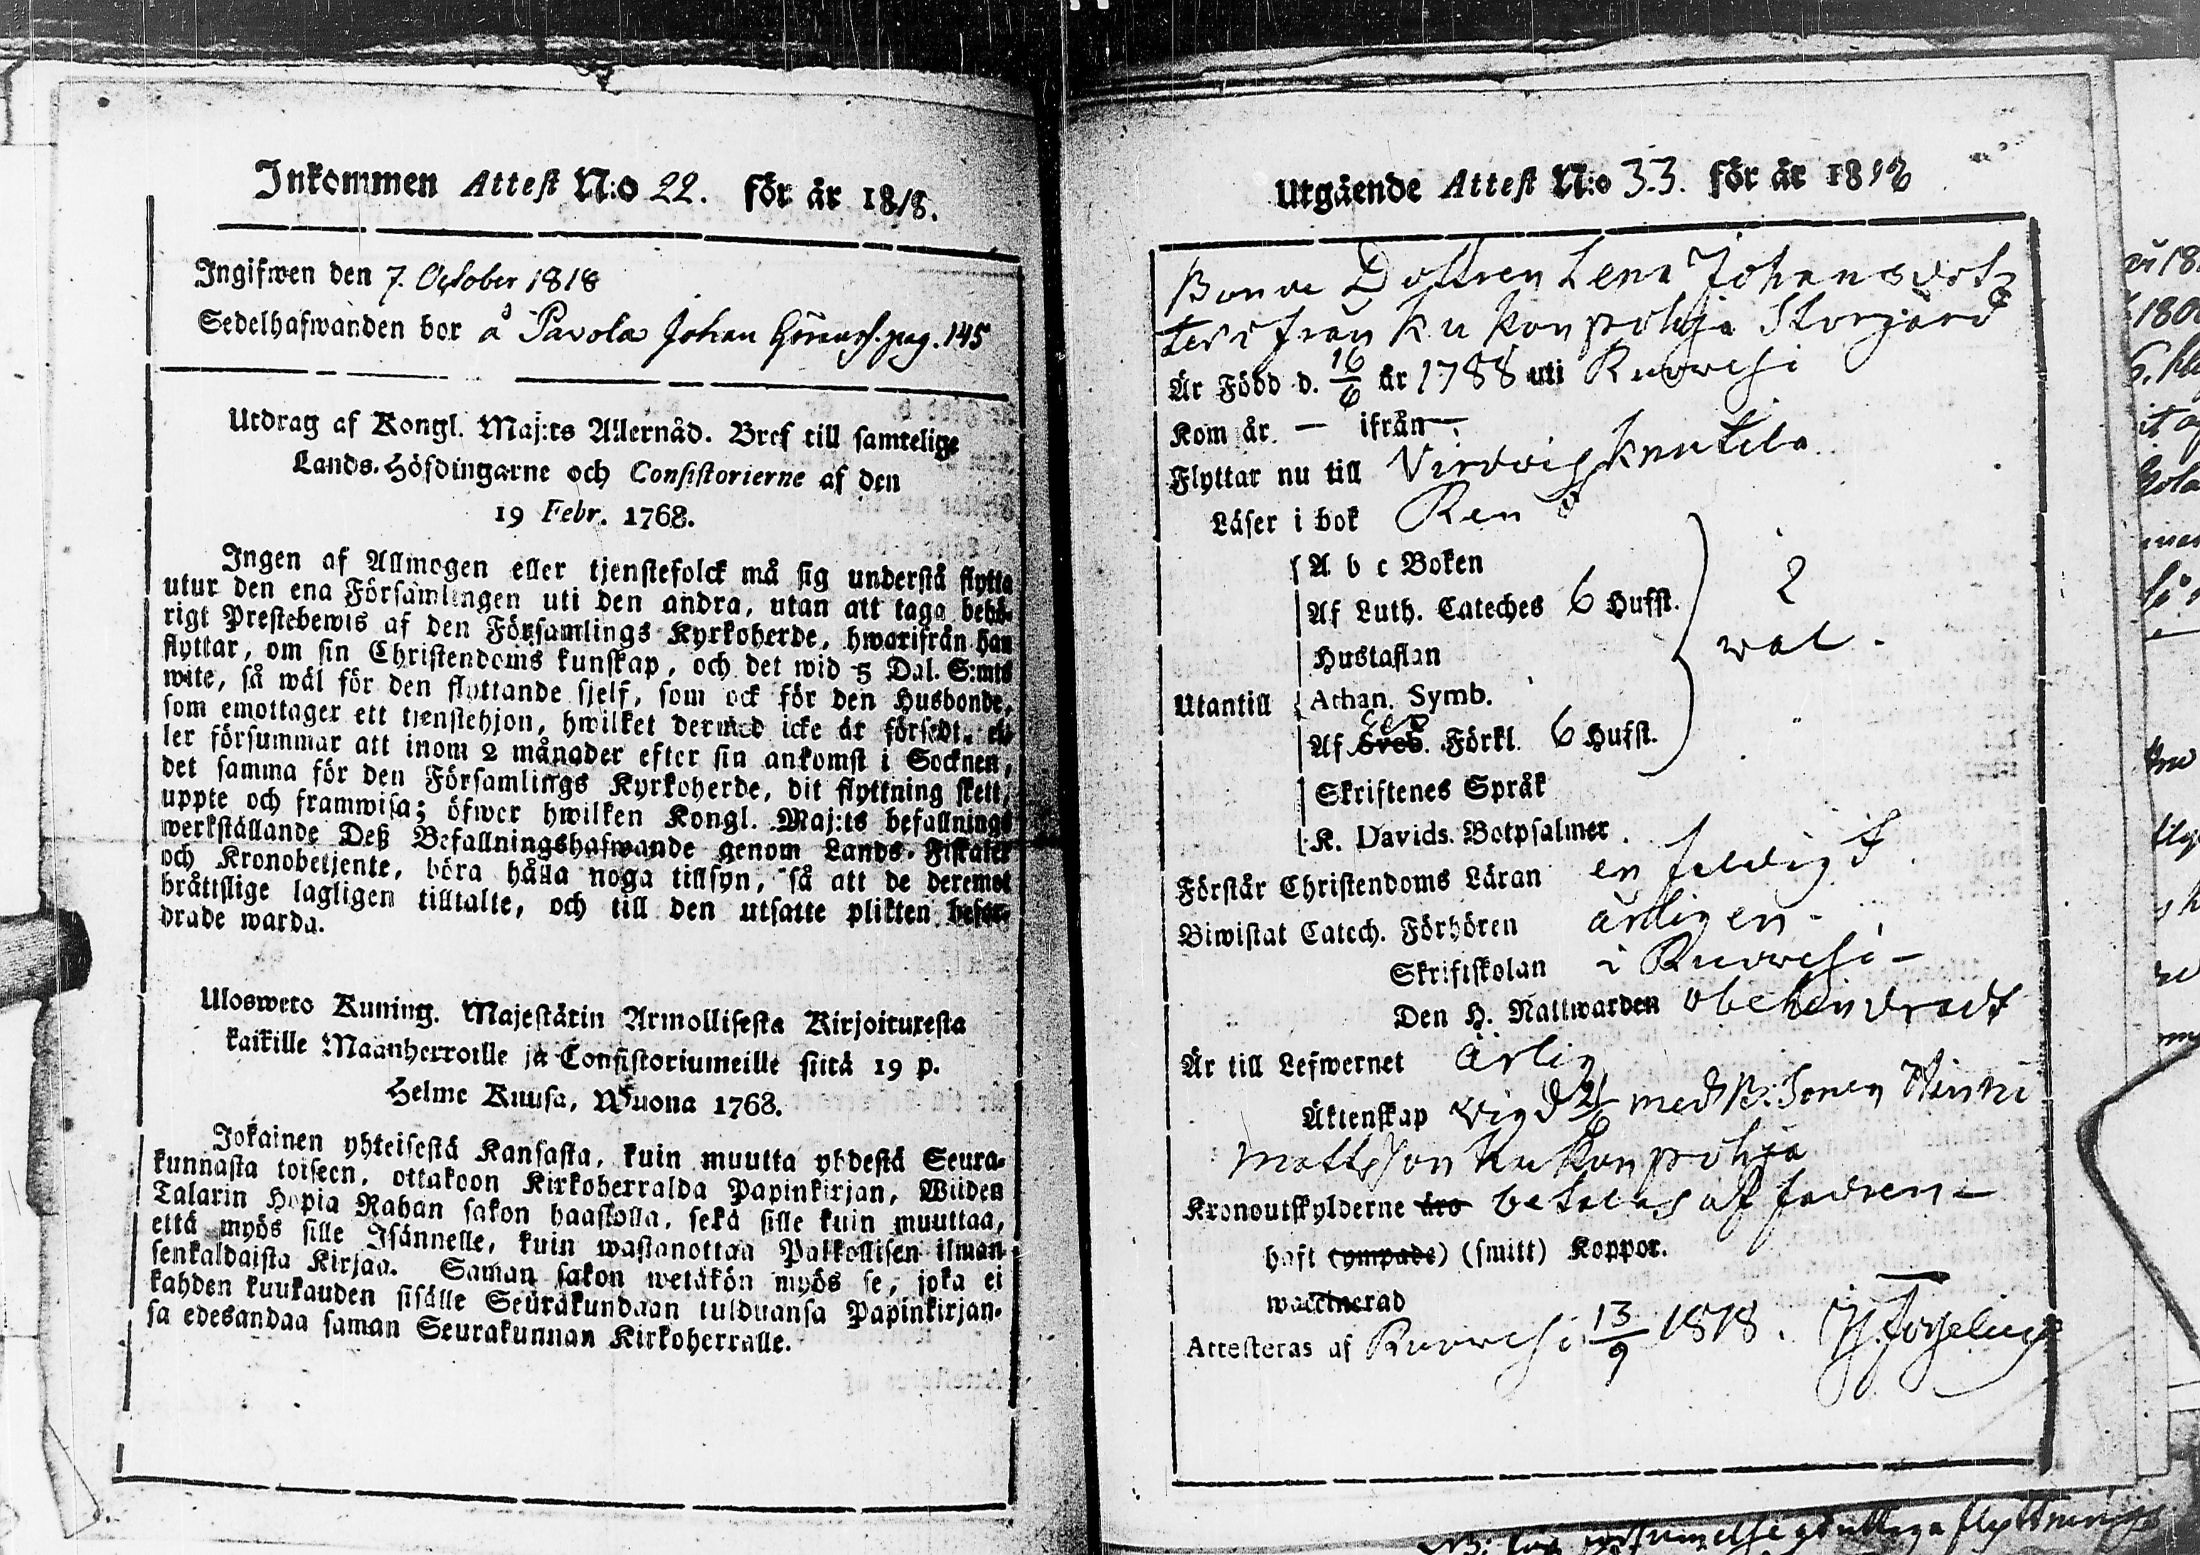 Inkommen Attest N:o 22. för år 1818.
Ingifwen den 7. October 1818
Sedelhafwanden bor å Pavola Johan pag. 145
Utdrag af Kongl. Maj:ts Allernåd. Bref till samtelige
Lands-Höfdingarne och Consistorierne af den
19 Febr. 1768.
Ingen af Allmogen eller tjenstefolck må sig understå flytta
utur den ena Församlingen uti den andra, utan att taga behö-
rigt Prestebewis af den Församlings Kyrkoherde, hwarifrån han
flyttar, om sin Christendoms kunskap, och det wid 5 Dal. S:mts
wite, så wäl för den flyttande sjelf, som ock för den Husbonde,
som emottager ett tjenstehjon, hwilket dermed icke är försedt, el-
ler försummar att inom 2 månader efter sin ankomst i Socknen,
det samma för den Församlings Kyrkoherde, dit flyttning skett,
uppte och framwisa; öfwer hwilken Kongl. Maj:ts befallnings
werkställande Deß Befallningshafwande genom Lands-Fiskaler
och Kronobetjente, böra hålla noga tillsyn, så att de deremot
bråttslige lagligen tilltalte, och till den utsatte plikten befor-
drade warda.
Ulosweto Kuning. Majestätin Armollisesta Kirjoituxesta
kaikille Maanherroille ja Consistoriumeille siitä 19 p.
Helme Kuusa, Wuona 1768.
Jokainen yhteisestä Kansasta, kuin muutta yhdestä Seura-
kunnasta toiseen, ottakoon Kirkoherralda Papinkirjan, Wiiden
Talarin Hopia Rahan sakon haastolla, sekä sille kuin muuttaa,
että myös sille Isännelle, kuin wastanottaa Palkollisen ilman
senkaldaista Kirjaa. Saman sakon wetäkön myös se, joka ei
kahden kuukauden sisälle Seurakundaan tulduansa Papinkirjan-
sa edesandaa saman Seurakunnan Kirkoherralle.
Utgående Attest N:o 33. för år 1818
Bonde Dottren Lena Johansdot
ter ifrån Kukonpohja Storgård
Är Född d. 16/6 år 1788 uti Ruowesi
Kom år. — ifrån —
Flyttar nu till Virdois Knutila
Läser i bok Ren
A b c Boken
Af Luth. Cateches 6 Hufst.
Hustaflan
wäl.
Utantill Athan. Symb.
Af Sveb. Förkl. 6 Hufst.
Skriftenes Språk
K. Davids. Botpsalmer
Förstår Christendoms Läran enfaldigt
Biwistat Catech. Förhören årligen
Skriftskolan i Ruowesi
Den H. Nattwarden obehindradt
Är till Lefwernet Ärlig
Äktenskap Vigd med B: Sonen Heiki
Mattsson Kukonpohja
Kronoutskylderne äro betalas af fadren
haft (ympade) (smitt) Koppor.
waccinerad
Attesteras af Ruowesi 13/9 1818.